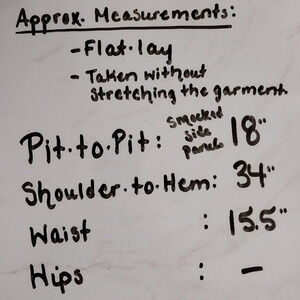 Approx. Measurements:
- Flat·lay
- Taken without
stretching the garment
Pit·to·Pit: smocked side panels 18"
Shoulder·to·Hem: 34"
Waist : 15.5"
Hips : -